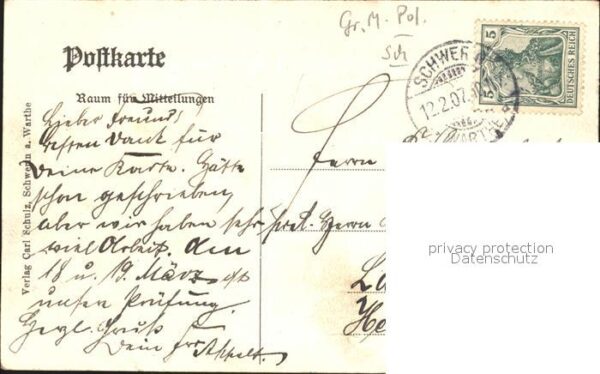 Gr. M. Pol.
Sch
Postkarte
Raum für Mitteilungen
Lieber Freund!
Besten Dank für
Deine Karte. Hätte
schon geschrieben,
aber wir haben sehr
viel Arbeit. Am
18 u. 19. März ist
unsere Prüfung.
Herzl. Gruß
Dein Fr.
Herrn
Herrn
Verlag Carl Schulz, Schwerin a. Warthe
5
5
DEUTSCHES REICH
SCHWERIN
12.2.07.
WARTHE
privacy protection
Datenschutz